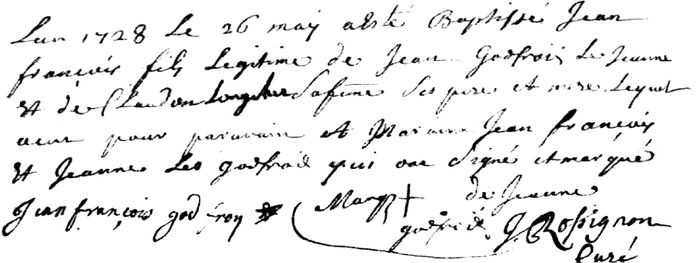 Lan 1728 Le 26 may a esté Baptissé Jean
françois fils Legitime de Jean Godfroid Le Jeune
Et de Claudon sa fame Ses pere et mere Lequel
a eut pour parain et Maraine Jean françois
Et Jeanne Les godfroid qui ont Signé et marqué
Jean françois godfroy Marq + de Jeanne
godfroid J Rossignon
Curé